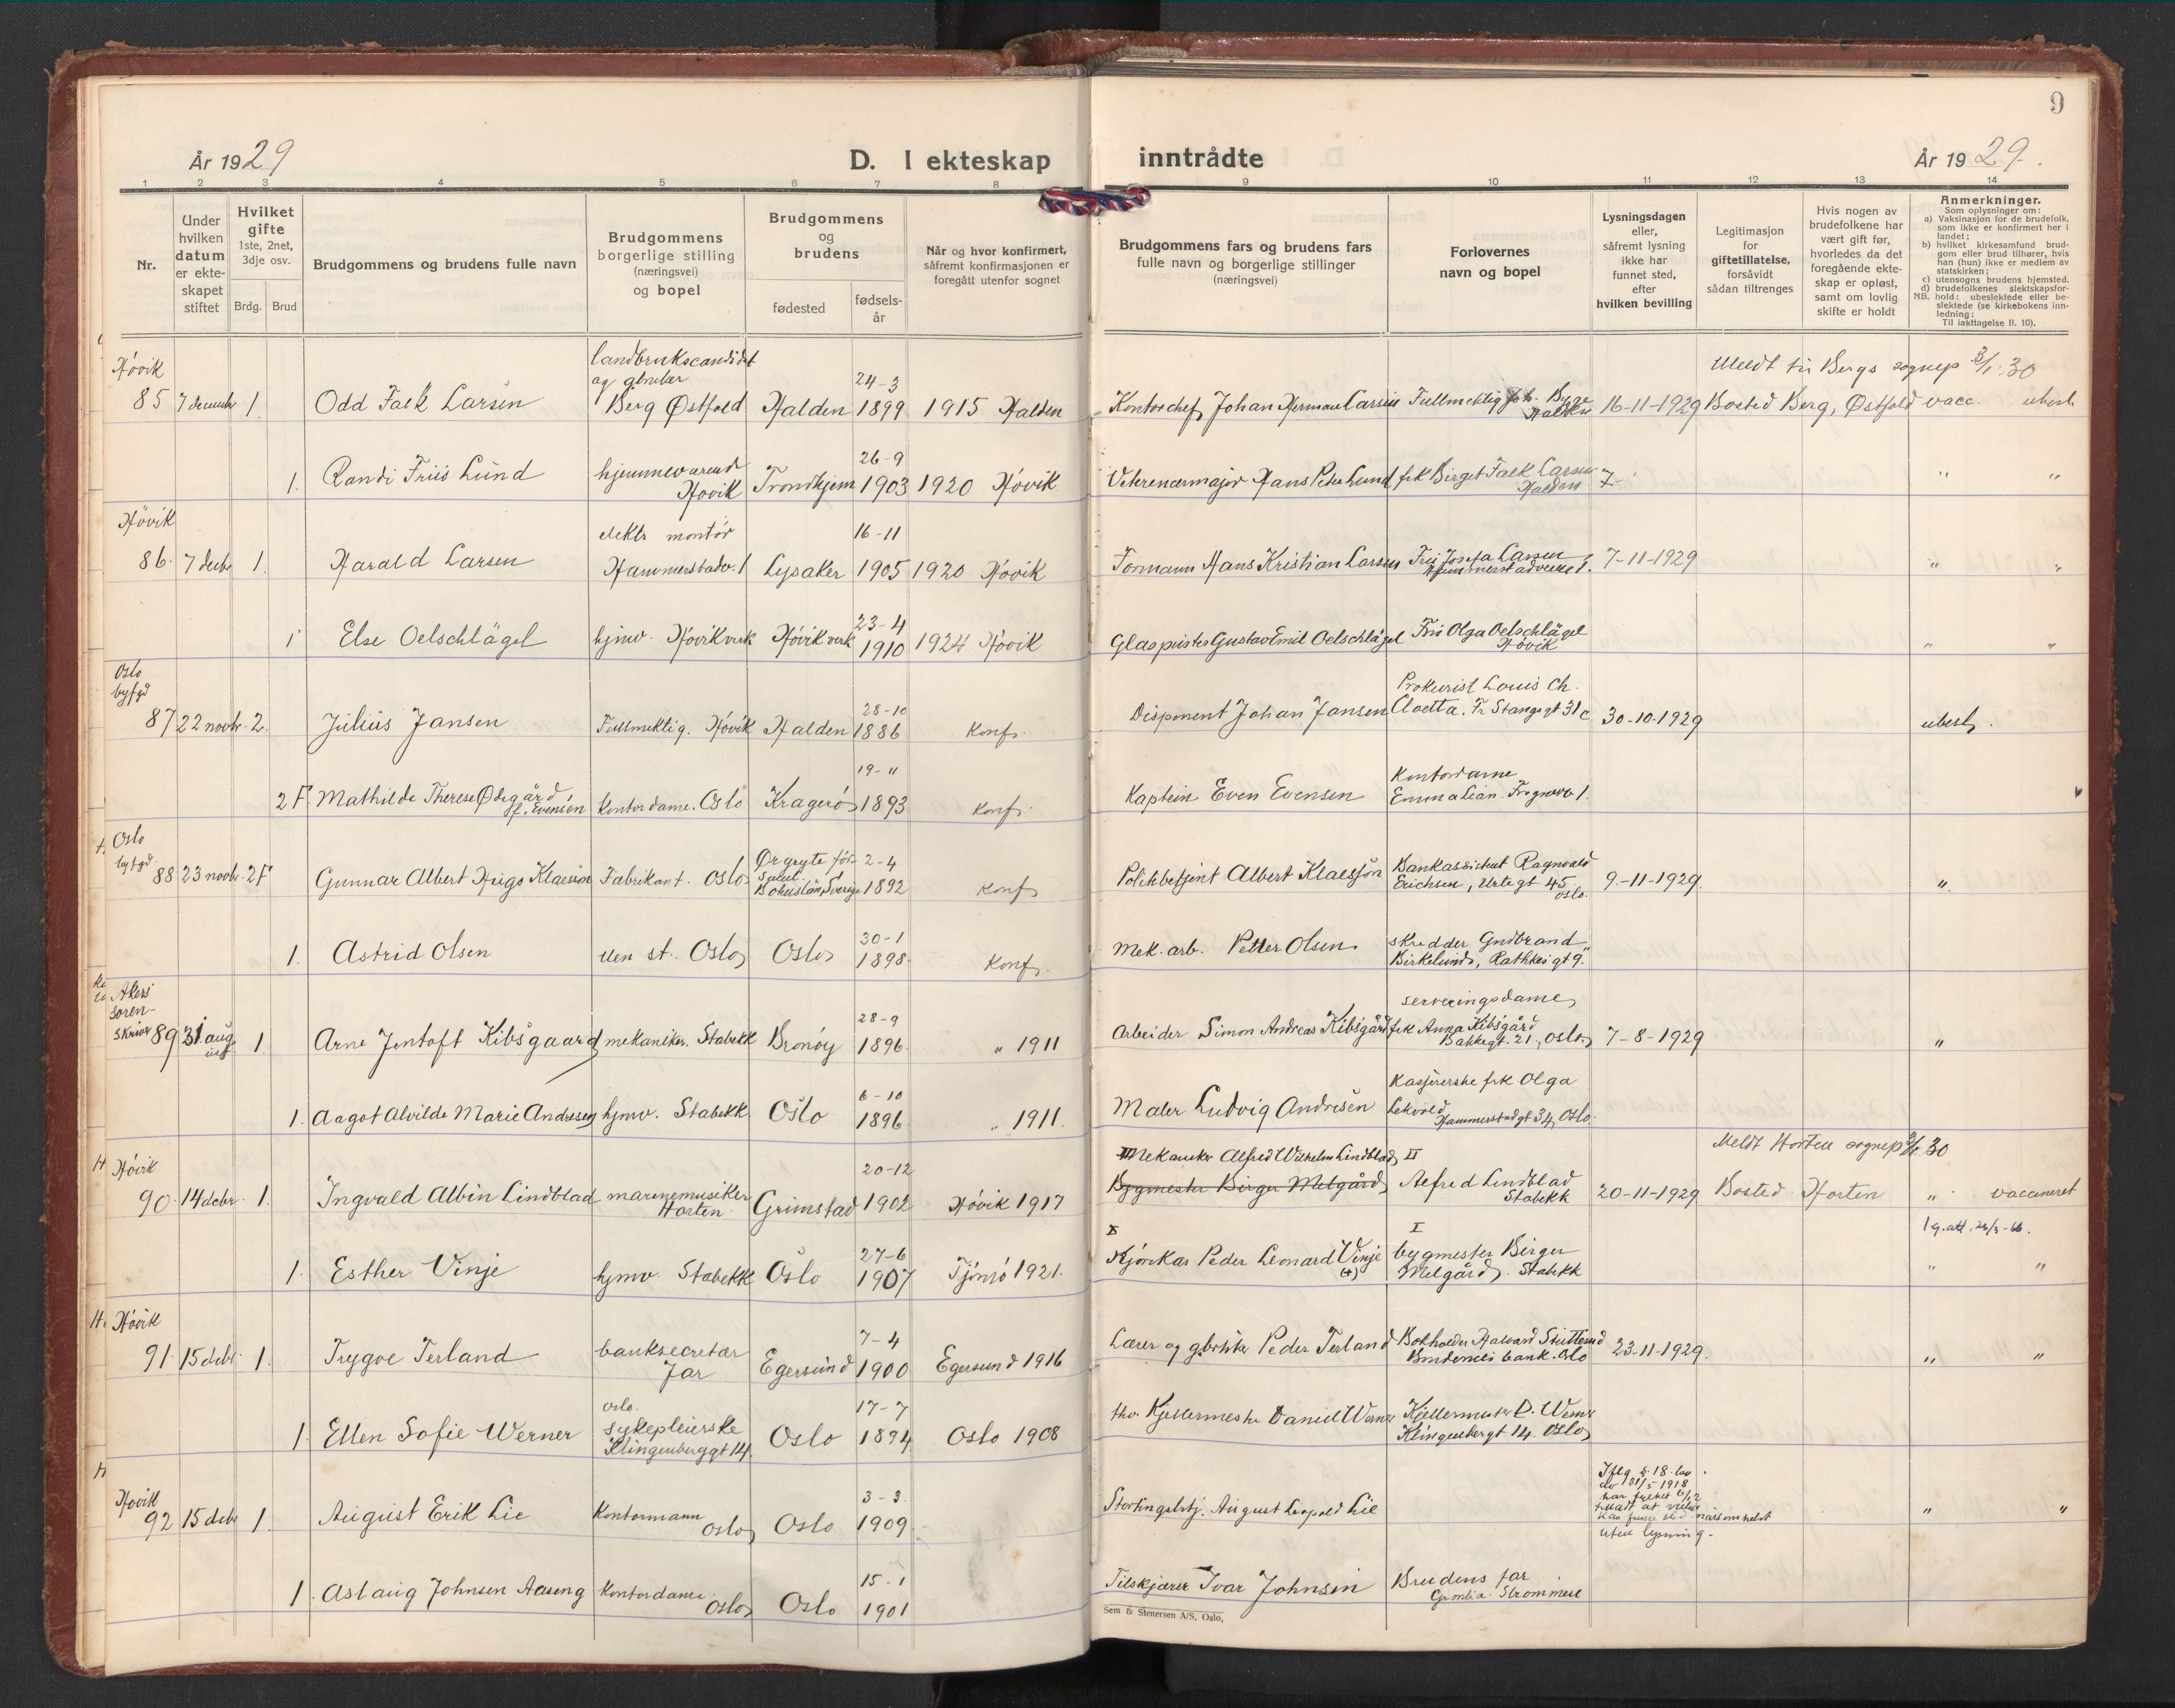 9
År 1929
D. I ekteskap inntrådte
År 1929.
1 2 3 4 5 6 7 8 9 10 11 12 13 14
Nr.
Under hvilken datum er ekteskapet stiftet
Hvilket gifte 1ste, 2net, 3dje osv.
Brdg. Brud
Brudgommens og brudens fulle navn
Brudgommens borgerlige stilling (næringsvei) og bopel
Brudgommens og brudens
fødested
fødselsår
Når og hvor konfirmert, såfremt konfirmasjonen er foregått utenfor sognet
Brudgommens fars og brudens fars fulle navn og borgerlige stillinger (næringsvei)
Forlovernes navn og bopel
Lysningsdagen eller, såfremt lysning ikke har funnet sted, efter hvilken bevilling
Legitimasjon for giftetillatelse, forsåvidt sådan tiltrenges
Hvis nogen av brudefolkene har vært gift før, hvorledes da det foregående ekteskap er opløst, samt om lovlig skifte er holdt
Anmerkninger.
Som oplysninger om:
a) Vaksinasjon for de brudefolk. som ikke er konfirmert her i landet;
b) hvilket kirkesamfund brudgom eller brud tilhører, hvis han (hun) ikke er medlem av statskirken;
c) utensogns brudens hjemsted.
d) brudefolkenes slektskapsforhold: ubeslektede eller beslektede (se kirkebokens innledning:
NB.
Til iakttagelse II. 10).
Høvik
landbrukscandidat
og gbruker
24-3
Meldt til Bergs sognep 3/1 30
85 7 decembr 1. Odd Falk Larsen Berg Østfold Halden 1899 1915 Halden Kontorchef Johan Herman Larsen Fullmektig Joh. Bygge Halden 16-11-1929 Bosted Berg, Østfold vacc. ubesl.
26-9
1. Randi Friis Lund hjemmeværende Høvik Trondhjem 1903 1920 Høvik Veterenærmajor Hans Peter Lund frk Birget Falk Larsen Halden " "
Høvik
elektr montør 16-11
86. 7 decbr 1. Harald Larsen Hammerstadv. 1 Lysaker 1905 1920 Høvik Formann Hans Kristian Larsen Fru Josefa Larsen Hammerstadveien 1. 7-11-1929 " "
23-4
1 Else Oelschlägel hjmv. Høvikverk Høvikverk 1910 1924 Høvik Glaspuster Gustav Emil Oelschlägel Fru Olga Oelschlägel Høvik " "
Oslo
byfgd
28-10
Prokurist Louis Ch.
87 22 novbr. 2. Julius Jansen Fullmektig. Høvik Halden 1886 Konf. Disponent Johan Jansen Cloetta. Fr Stangs gt 31c 30-10-1929 ubesl.
19-11
Kontordame
2 F. Mathilde Therese Ødegård f. Evensen Kontordame. Oslo Kragerø 1893 Konf. Kaptein Even Evensen Emma Lian. Frognerv 1.
Oslo
byfgd.
Ørgryte för
saml.
2-4
88 23 novbr. 2F Gunnar Albert Hugo Klaesson Fabrikant. Oslo Bohuslän, Sverige 1892 Konf. Politibetjent Albert Klaesson Bankassistent Ragnvald Erichsen, Urtegt 45, Oslo. 9.-11-1929. "
30-1
1. Astrid Olsen uten st. Oslo Oslo 1898. Konf. Mek. arb. Petter Olsen skredder Gudbrand Birkelund, Rathkes gt 9.
Akers
soren-
skriver
28-9
serveringsdame
89 31 aug 1 Arne Jentoft Kibsgaard mekaniker. Stabekk Brønøy 1896. " 1911 Arbeider Simon Andreas Kibsgård frk Anna Kibsgård Bakkegt. 21, Oslo. 7-8-1929 "
6-10
Kasjererske frk Olga
1. Aagot Alvilde Marie Andresen hjmv. Stabekk Oslo 1896. " 1911. Maler Ludvig Andresen Lekvold Hammerstadgt 34, Oslo.
Høvik
20-12
II Mekaniker Alfred Wilhelm Lindblad II
Meldt Horten sognep 3/1 30
90. 14 decbr. 1. Ingvald Albin Lindblad marinemusiker Horten. Grimstad 1902 Høvik 1917 Bygmester Birger Melgård Alfred Lindblad Stabekk 20-11-1929 Bosted Horten " vaccineret
1 g. att. 24/3-66.
27-6
I I
1. Esther Vinje hjmv. Stabekk Oslo 1907 Tjømø 1921. Kjørekar Peder Leonard Vinje (+) bygmester Birger Melgård. Stabekk " "
Høvik
7-4
91. 15 decbr. 1. Trygve Terland banksecretær Jar Egersund 1900 Egersund 1916 Lærer og gbruker Peder Terland Bokholder Halvard Stuttesrud Bøndernes bank. Oslo 23-11-1929. " "
oslo.
17-7
1. Ellen Sofie Werner sykepleierske Klingenberggt 14. Oslo 1894 Oslo 1908 thv. Kjellermester Daniel Werner Kjellermester D. Werner Klingenbergt 14. Oslo
Høvik
3-3.
Iflg § 18. lov
av 31/5 1918
har
tillatt at vielse
kan finne sted nårsomhelst
uten lysning.
92 15 decbr 1. August Erik Lie Kontormann Oslo Oslo 1909. Stortingsbtj. August Leopold Lie " "
15-1
1. Aslaug Johnsen Aaseng Kontordame Oslo Oslo 1901 Tilskjærer Ivar Johnsen Brudens far Grønlia. Strømmen
Sem & Stenersen A/S, Oslo,